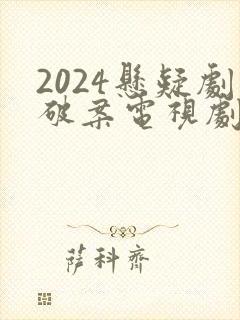 2024懸疑劇
破案電視劇
薩科齊